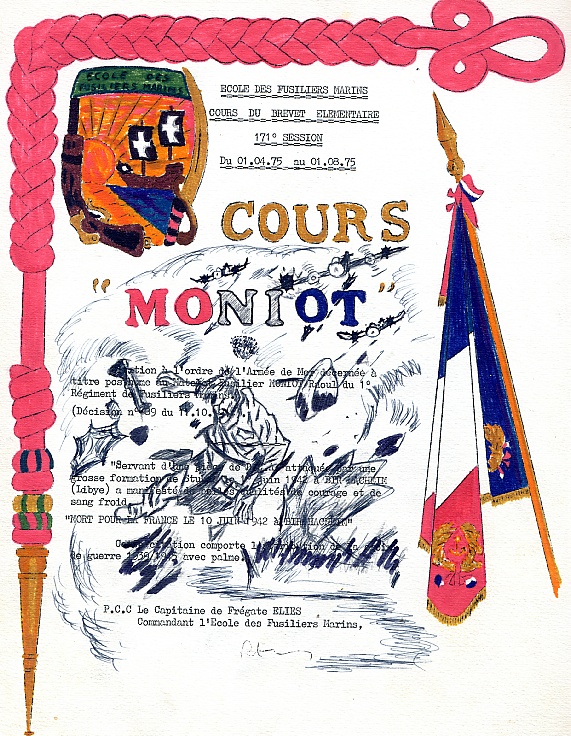 ECOLE DES
FUSILIERS MARINS
ECOLE DES FUSILIERS MARINS
COURS DU BREVET ELEMENTAIRE
171° SESSION
Du 01.04.75 au 01.08.75
COURS
"MONIOT"
à l'ordre de l'Armée de Mer décernée à
titre posthume au Matelot Fusilier MONIOT Raoul du 1°
Régiment de Fusiliers
(Décision n° 89 du
"Servant d'une pièce de attaquée par une
grosse formation de Stukas le juin 1942 à BIR HACHEIM
(Libye) a manifesté de qualités de courage et de
sang froid.
"MORT POUR LA FRANCE LE 10 JUIN 1942 A BIR HACHEIM"
Cette citation comporte l'attribution de la
de guerre avec palme.
P.C.C Le Capitaine de Frégate ELIES
Commandant l'Ecole des Fusiliers Marins,